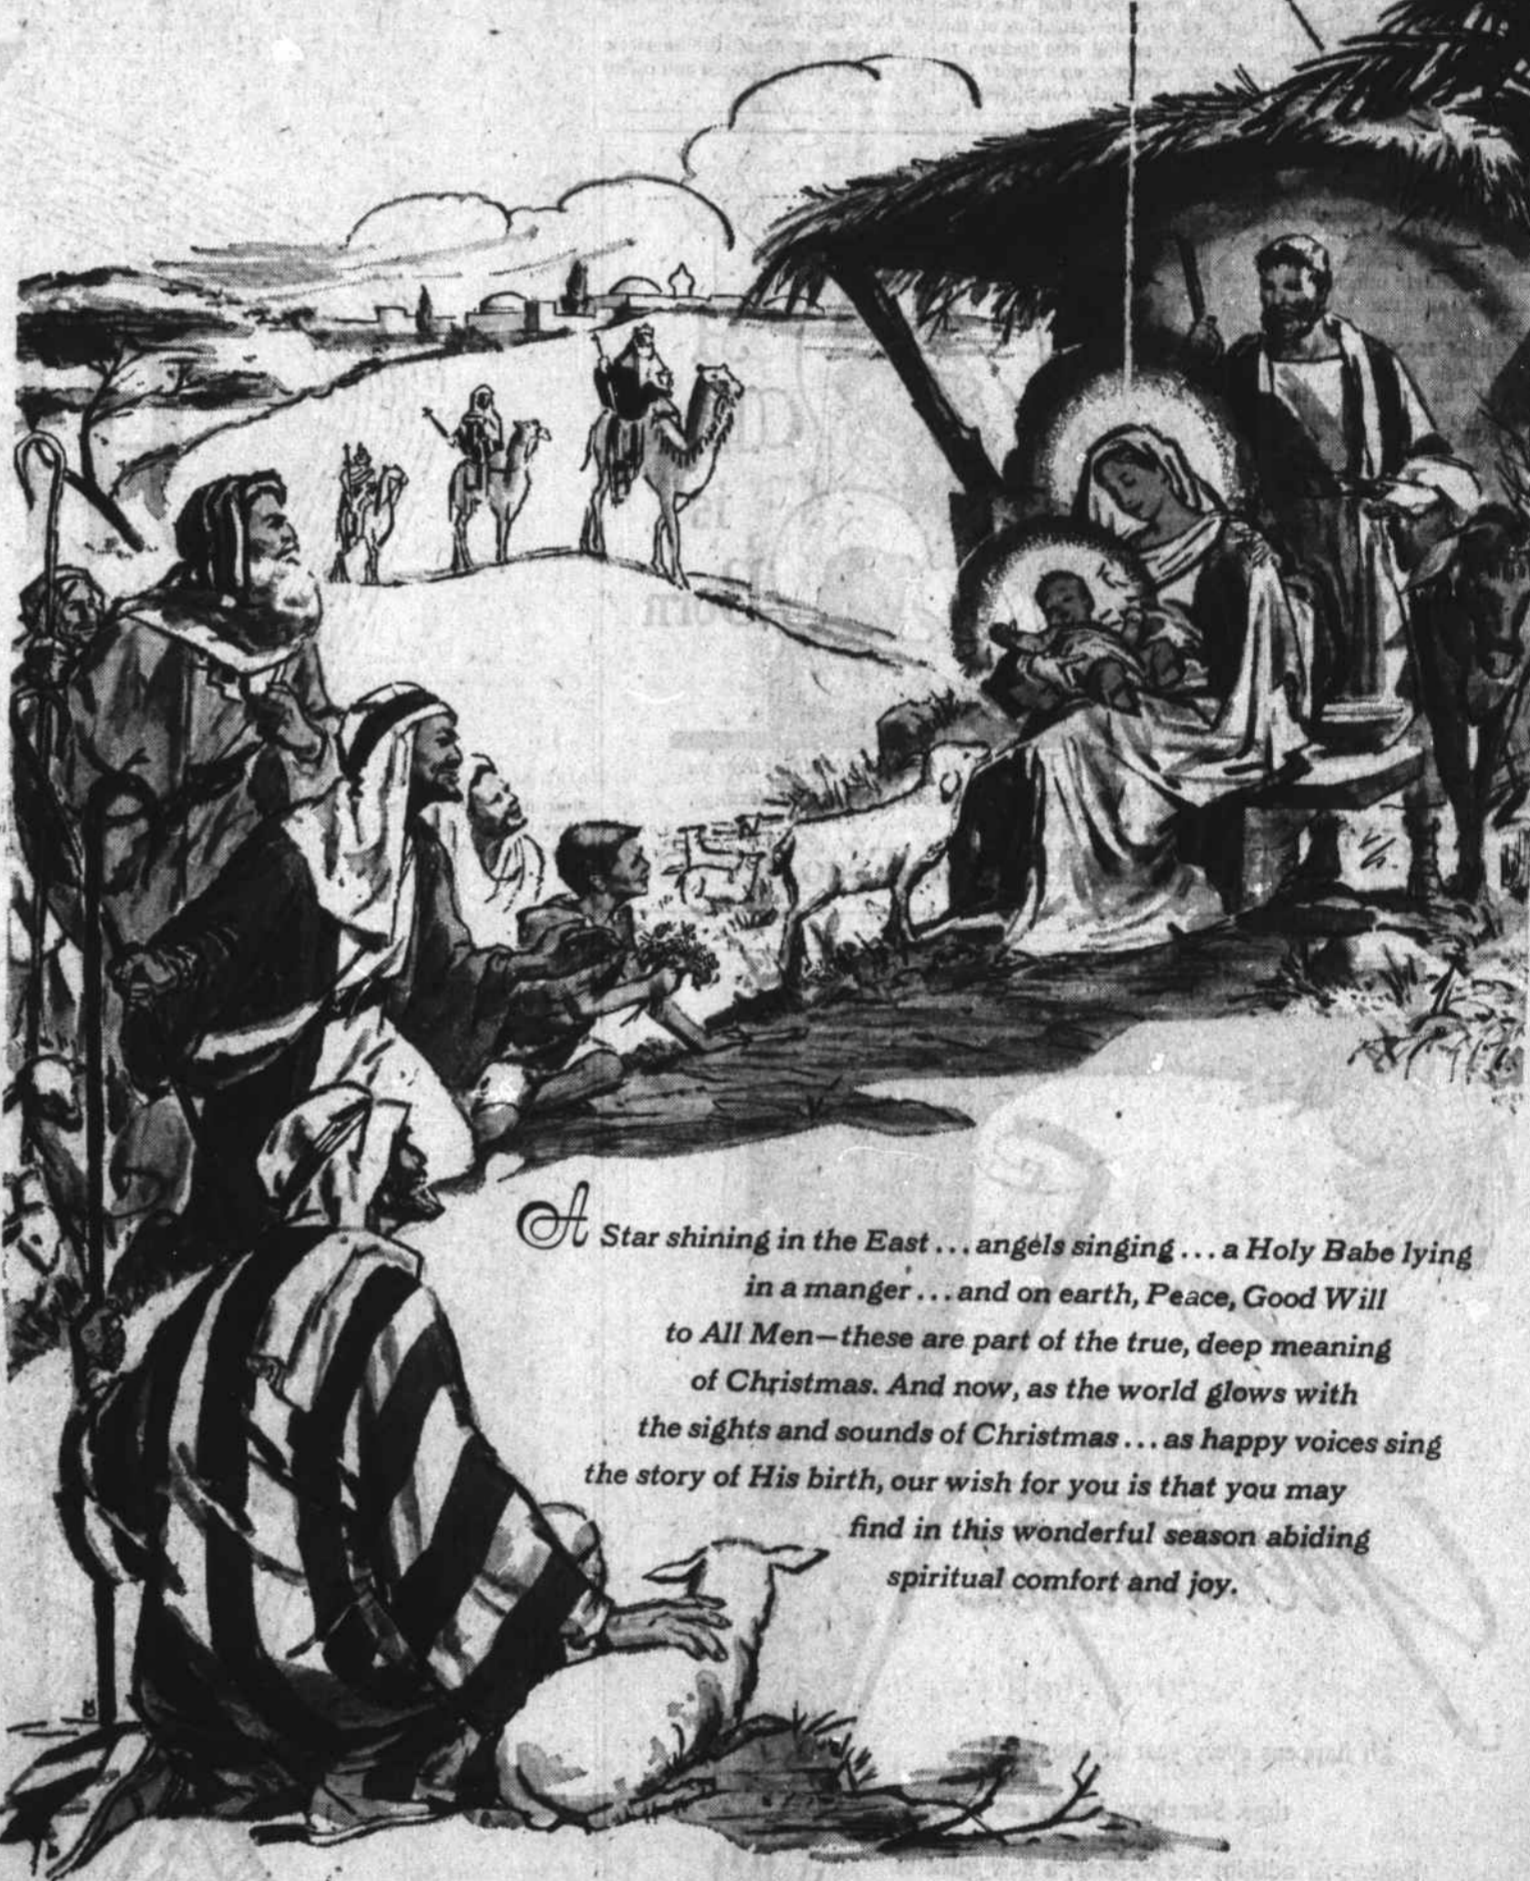 A Star shining in the East... angels singing... a Holy Babe lying
in a manger... and on earth, Peace, Good Will
to All Men—these are part of the true, deep meaning
of Christmas. And now, as the world glows with
the sights and sounds of Christmas... as happy voices sing
the story of His birth, our wish for you is that you may
find in this wonderful season abiding
spiritual comfort and joy.